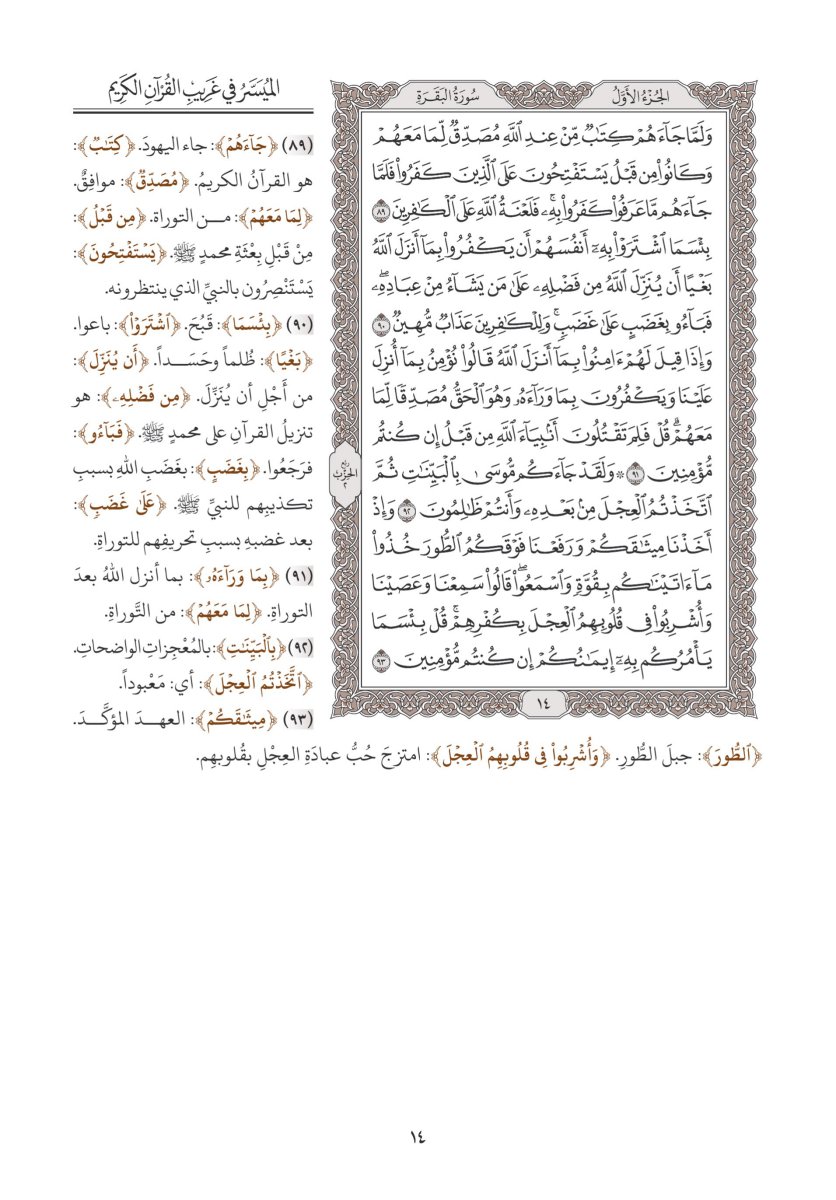 الجُزْءُ الأَوَّلُ
سُورَةُ البَقَرَةِ
وَلَمَّا جَآءَهُمْ كِتَٰبٌ مِّنْ عِندِ ٱللَّهِ مُصَدِّقٌ لِّمَا مَعَهُمْ
وَكَانُوا۟ مِن قَبْلُ يَسْتَفْتِحُونَ عَلَى ٱلَّذِينَ كَفَرُوا۟ فَلَمَّا
جَآءَهُم مَّا عَرَفُوا۟ كَفَرُوا۟ بِهِۦۚ فَلَعْنَةُ ٱللَّهِ عَلَى ٱلْكَٰفِرِينَ ٨٩
بِئْسَمَا ٱشْتَرَوْا۟ بِهِۦٓ أَنفُسَهُمْ أَن يَكْفُرُوا۟ بِمَآ أَنزَلَ ٱللَّهُ
بَغْيًا أَن يُنَزِّلَ ٱللَّهُ مِن فَضْلِهِۦ عَلَىٰ مَن يَشَآءُ مِنْ عِبَادِهِۦۖ
فَبَآءُو بِغَضَبٍ عَلَىٰ غَضَبٍۚ وَلِلْكَٰفِرِينَ عَذَابٌ مُّهِينٌ ٩٠
وَإِذَا قِيلَ لَهُمْ ءَامِنُوا۟ بِمَآ أَنزَلَ ٱللَّهُ قَالُوا۟ نُؤْمِنُ بِمَآ أُنزِلَ
عَلَيْنَا وَيَكْفُرُونَ بِمَا وَرَآءَهُۥ وَهُوَ ٱلْحَقُّ مُصَدِّقًا لِّمَا
مَعَهُمْۗ قُلْ فَلِمَ تَقْتُلُونَ أَنۢبِيَآءَ ٱللَّهِ مِن قَبْلُ إِن كُنتُم
مُّؤْمِنِينَ ٩١ ۞ وَلَقَدْ جَآءَكُم مُّوسَىٰ بِٱلْبَيِّنَٰتِ ثُمَّ
ٱتَّخَذْتُمُ ٱلْعِجْلَ مِنۢ بَعْدِهِۦ وَأَنتُمْ ظَٰلِمُونَ ٩٢ وَإِذْ
أَخَذْنَا مِيثَٰقَكُمْ وَرَفَعْنَا فَوْقَكُمُ ٱلطُّورَ خُذُوا۟
مَآ ءَاتَيْنَٰكُم بِقُوَّةٍ وَٱسْمَعُوا۟ۖ قَالُوا۟ سَمِعْنَا وَعَصَيْنَا
وَأُشْرِبُوا۟ فِى قُلُوبِهِمُ ٱلْعِجْلَ بِكُفْرِهِمْۚ قُلْ بِئْسَمَا
يَأْمُرُكُم بِهِۦٓ إِيمَٰنُكُمْ إِن كُنتُم مُّؤْمِنِينَ ٩٣
١٤
ربع
الحزب
٢
المُيَسَّرُ في غَرِيبِ القُرْآنِ الكَرِيم
(٨٩) ﴿جَآءَهُمْ﴾: جاء اليهودَ. ﴿كِتَٰبٌ﴾:
هو القرآنُ الكريمُ. ﴿مُصَدِّقٌ﴾: موافِقٌ.
﴿لِمَا مَعَهُمْ﴾: مـن التوراة. ﴿مِن قَبْلُ﴾:
مِنْ قَبْلِ بِعْثَةِ محمدٍ ﷺ. ﴿يَسْتَفْتِحُونَ﴾:
يَسْتَنْصِرُون بالنبيِّ الذي ينتظرونه.
(٩٠) ﴿بِئْسَمَا﴾: قَبُحَ. ﴿ٱشْتَرَوْا۟﴾: باعوا.
﴿بَغْيًا﴾: ظُلماً وحَسَـداً. ﴿أَن يُنَزِّلَ﴾:
من أَجْلِ أن يُنَزِّلَ. ﴿مِن فَضْلِهِۦ﴾: هو
تنزيلُ القرآنِ على محمدٍ ﷺ. ﴿فَبَآءُو﴾:
فرَجَعُوا. ﴿بِغَضَبٍ﴾: بغَضَبِ اللهِ بسببِ
تكذيبِهم للنبيِّ ﷺ. ﴿عَلَىٰ غَضَبٍ﴾:
بعد غضبهِ بسببِ تحريفِهم للتوراةِ.
(٩١) ﴿بِمَا وَرَآءَهُۥ﴾: بما أنزل اللهُ بعدَ
التوراةِ. ﴿لِمَا مَعَهُمْ﴾: من التَّوراةِ.
(٩٢) ﴿بِٱلْبَيِّنَٰتِ﴾: بالمُعْجِزاتِ الواضحاتِ.
﴿ٱتَّخَذْتُمُ ٱلْعِجْلَ﴾: أي: مَعْبوداً.
(٩٣) ﴿مِيثَٰقَكُمْ﴾: العهـدَ المؤكَّـدَ.
﴿ٱلطُّورَ﴾: جبلَ الطُّورِ. ﴿وَأُشْرِبُوا۟ فِى قُلُوبِهِمُ ٱلْعِجْلَ﴾: امتزجَ حُبُّ عبادَةِ العِجْلِ بقُلوبهِم.
١٤